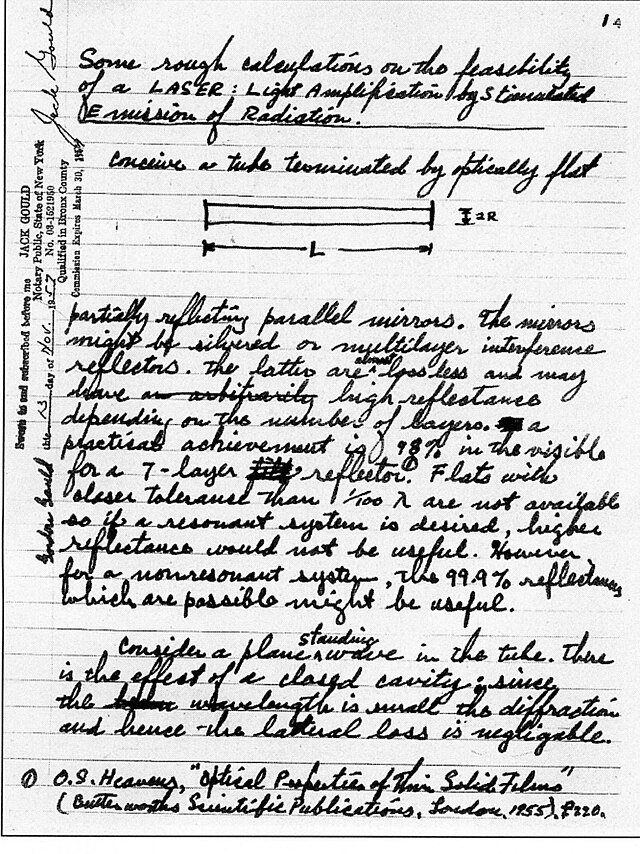 1 a
Some rough calculations on the feasibility
of a LASER: Light Amplification by Stimulated
Emission of Radiation.
conceive a tube terminated by optically flat
2R
L
partially reflecting parallel mirrors. The mirrors
might be silvered or multilayer interference
reflectors. The latter are almost lossless and may
have an arbitrarily high reflectance
depending on the number of layers. a
practical achievement is 98% in the visible
for a 7-layer reflector.① Flats with
closer tolerance than 1/100 λ are not available
so if a resonant system is desired, higher
reflectance would not be useful. However
for a nonresonant system, the 99.9% reflectances
which are possible might be useful.
Consider a plane standing wave in the tube. There
is the effect of a closed cavity; since
the wavelength is small the diffraction
and hence the lateral loss is negligable.
① O.S. Heavens, "Optical Properties of Thin Solid Films"
(Butterworths Scientific Publications, London, 1955), P220.
Gordon Gould
Sworn to and subscribed before me
this 13 day of Nov. 1957
JACK GOULD
Notary Public, State of New York
No. 03-1521950
Qualified in Bronx County
Commission Expires March 30, 19
Jack Gould